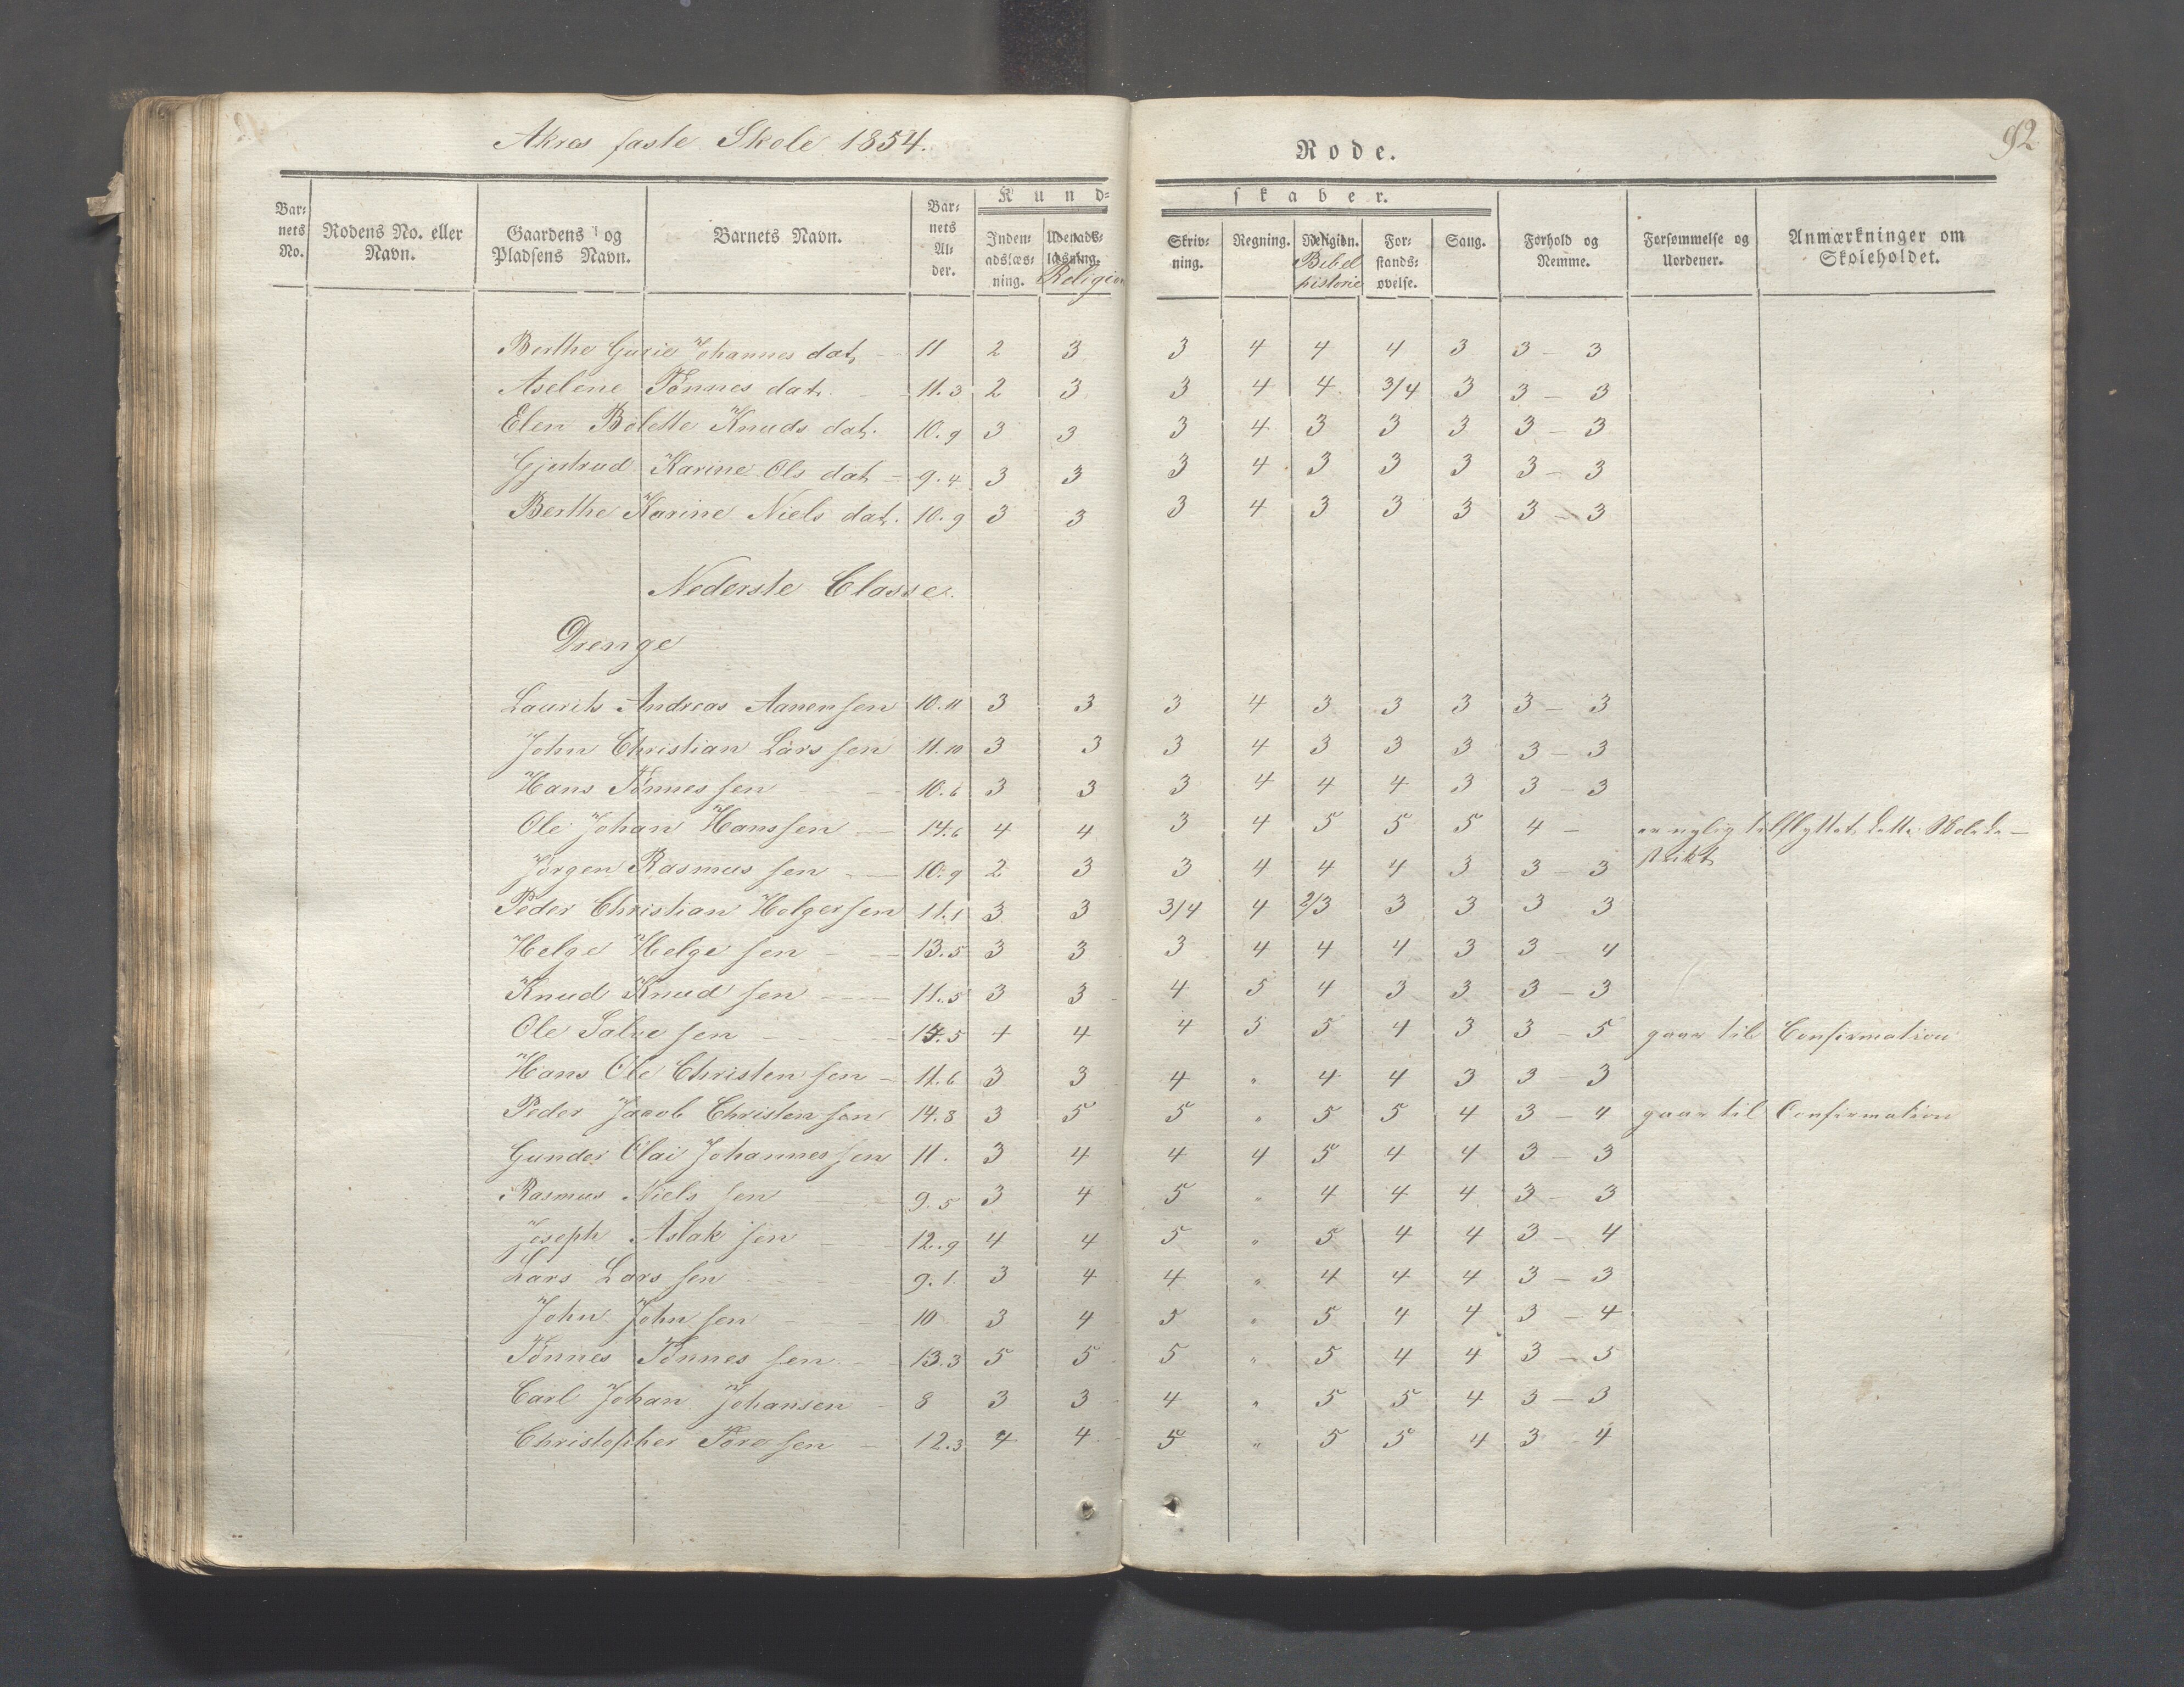 Akres faste Skole 1854.
Rode.
92
Kund=
skaber.
Barnets No. | Rodens No. eller Navn. | Gaardens og Pladsens Navn. | Barnets Navn. | Barnets Alder. | Indenadslæsning. | Udenadslæsning. Religion | Skrivning. | Regning. | Religion. Bibelhistorie | Forstandsøvelse. | Sang. | Forhold og Nemme. | Forsømmelse og Uordener. | Anmærkninger om Skoleholdet.
Berthe Gurie Johannes dat, - 11 2 3 3 4 4 4 3 3 - 3
Aselene Tønnes dat. - 11.3 2 3 3 4 4 3/4 3 3 - 3
Elen Bolette Knuds dat. 10.9 3 3 3 4 3 3 3 3 - 3
Gjertrud Karine Ols dat - 9.4 3 3 3 4 3 3 3 3 - 3
Berthe Karine Niels dat. 10.9 3 3 3 4 3 3 3 3 - 3
Nederste Classe.
Drenge
Laurits Andreas Aanensen 10.11 3 3 3 4 3 3 3 3 - 3
John Christian Larssen 11.10 3 3 3 4 3 3 3 3 - 3
Hans Tønnessen - 10.6 3 3 3 4 4 4 3 3 - 3
Ole Johan Hanssen - 14.6 4 4 3 4 5 5 5 4 - er nylig tilflyttet dette Skoledi-
strikt
Jørgen Rasmussen - 10.9 2 3 3 4 4 4 3 3 - 3
Peder Christian Holgersen 11.1 3 3 3/4 4 2/3 3 3 3 3
Helge Helgesen - 13.5 3 3 3 4 4 4 3 3 - 4
Knud Knudsen - 11.5 3 3 4 5 4 3 3 3 - 3
Ole Salvesen - 14.5 4 4 4 5 5 4 3 3 - 5 gaar til Confirmation
Hans Ole Christensen - 11.6 3 3 4 " 4 4 3 3 - 3
Peder Jacob Christensen 14.8 3 5 5 " 5 5 4 3 - 4 gaar til Confirmation
Gunder Olai Johannessen 11. 3 4 4 4 5 4 4 3 - 3
Rasmus Nielssen - 9.5 3 4 5 " 4 4 4 3 - 3
Joseph Aslaksen - 12.9 4 4 5 " 5 4 4 3 - 4
Lars Larssen - 9.1. 3 4 4 " 4 4 4 3 - 3
John Johnsen - 10 3 4 5 " 5 4 4 3 - 4
Tønnes Tønnessen - 13.3 5 5 5 " 5 4 4 3 - 5
Carl Johan Johansen - 8 3 3 4 " 5 5 4 3 - 3
Christopher Toresen - 12.3 4 4 5 " 5 5 4 3 - 4